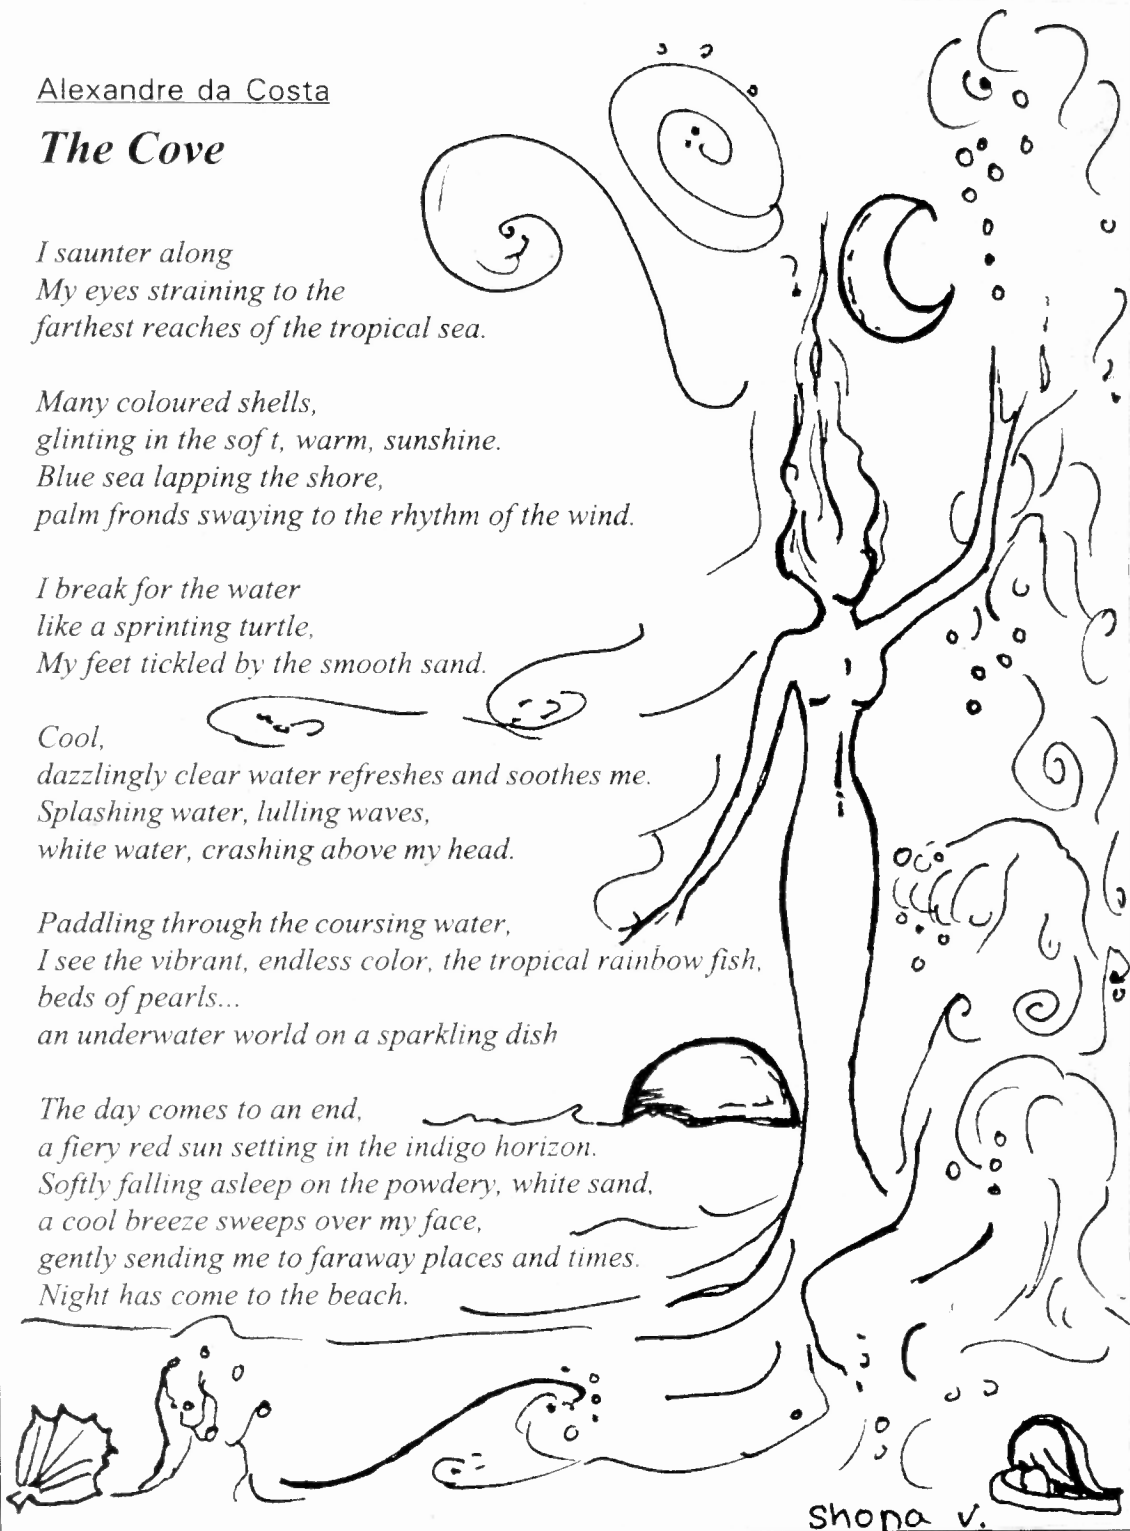 Alexandre da Costa
The Cove
I saunter along
My eyes straining to the
farthest reaches of the tropical sea.
Many coloured shells,
glinting in the soft, warm, sunshine.
Blue sea lapping the shore,
palm fronds swaying to the rhythm of the wind.
I break for the water
like a sprinting turtle,
My feet tickled by the smooth sand.
Cool,
dazzlingly clear water refreshes and soothes me.
Splashing water, lulling waves,
white water, crashing above my head.
Paddling through the coursing water,
I see the vibrant, endless color, the tropical rainbow fish,
beds of pearls...
an underwater world on a sparkling dish
The day comes to an end,
a fiery red sun setting in the indigo horizon.
Softly falling asleep on the powdery, white sand,
a cool breeze sweeps over my face,
gently sending me to faraway places and times.
Night has come to the beach.
Shona v.